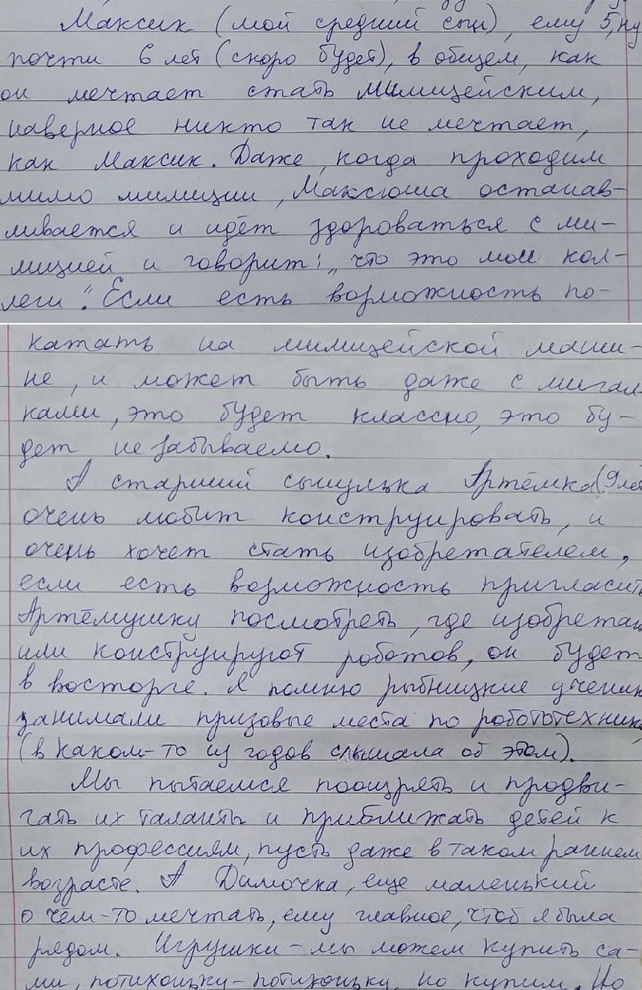 Максик (мой средний сын), ему 5, ну
почти 6 лет (скоро будет), в общем, как
он мечтает стать милицейским,
наверное никто так не мечтает,
как Максик. Даже, когда проходим
мимо милиции, Максюша останав-
ливается и идёт здороваться с ми-
лицией и говорит: „что это мои кол-
леги". Если есть возможность по-
катать на милицейской маши-
не, и может быть даже с мигал-
ками, это будет классно, это бу-
дет незабываемо.
А старший сынулька Артёмка (9 лет
очень любит конструировать, и
очень хочет стать изобретателем,
если есть возможность пригласить
Артёмушку посмотреть, где изобретают
или конструируют роботов, он будет
в восторге. Я помню рыбницкие ученики
занимали призовые места по робототехнике
(в каком-то из годов слышала об этом).
Мы пытаемся поощрять и продви-
гать их таланты и приближать детей к
их профессиям, пусть даже в таком раннем
возрасте. А Димочка, еще маленький
о чём-то мечтать, ему главное, чтоб я была
рядом. Игрушки - мы можем купить са-
ми, потихоньку-потихоньку, но купим. Но